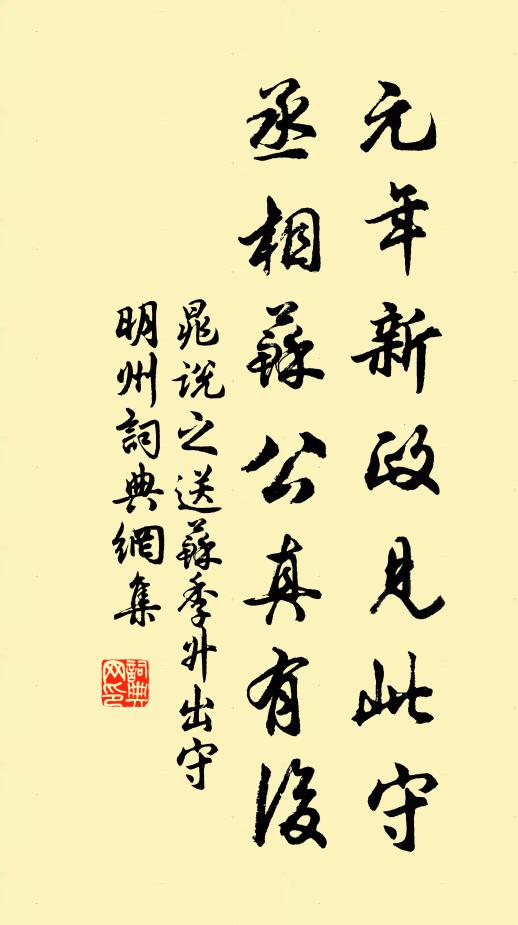 元年新政見此守
丞相蘇公真有後
晁說之送蘇季升出守
明州詞典網集
詞典
网印